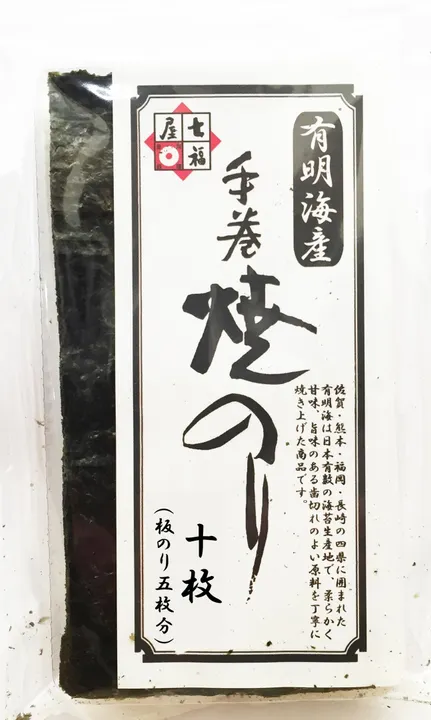 有明海産
七福屋
手巻
焼のり
十枚
(板のり五枚分)
佐賀・熊本・福岡・長崎の四県に囲まれた
有明海は日本有数の海苔生産地で、柔らかく
甘味、旨味のある歯切れのよい原料を丁寧に
焼き上げた商品です。